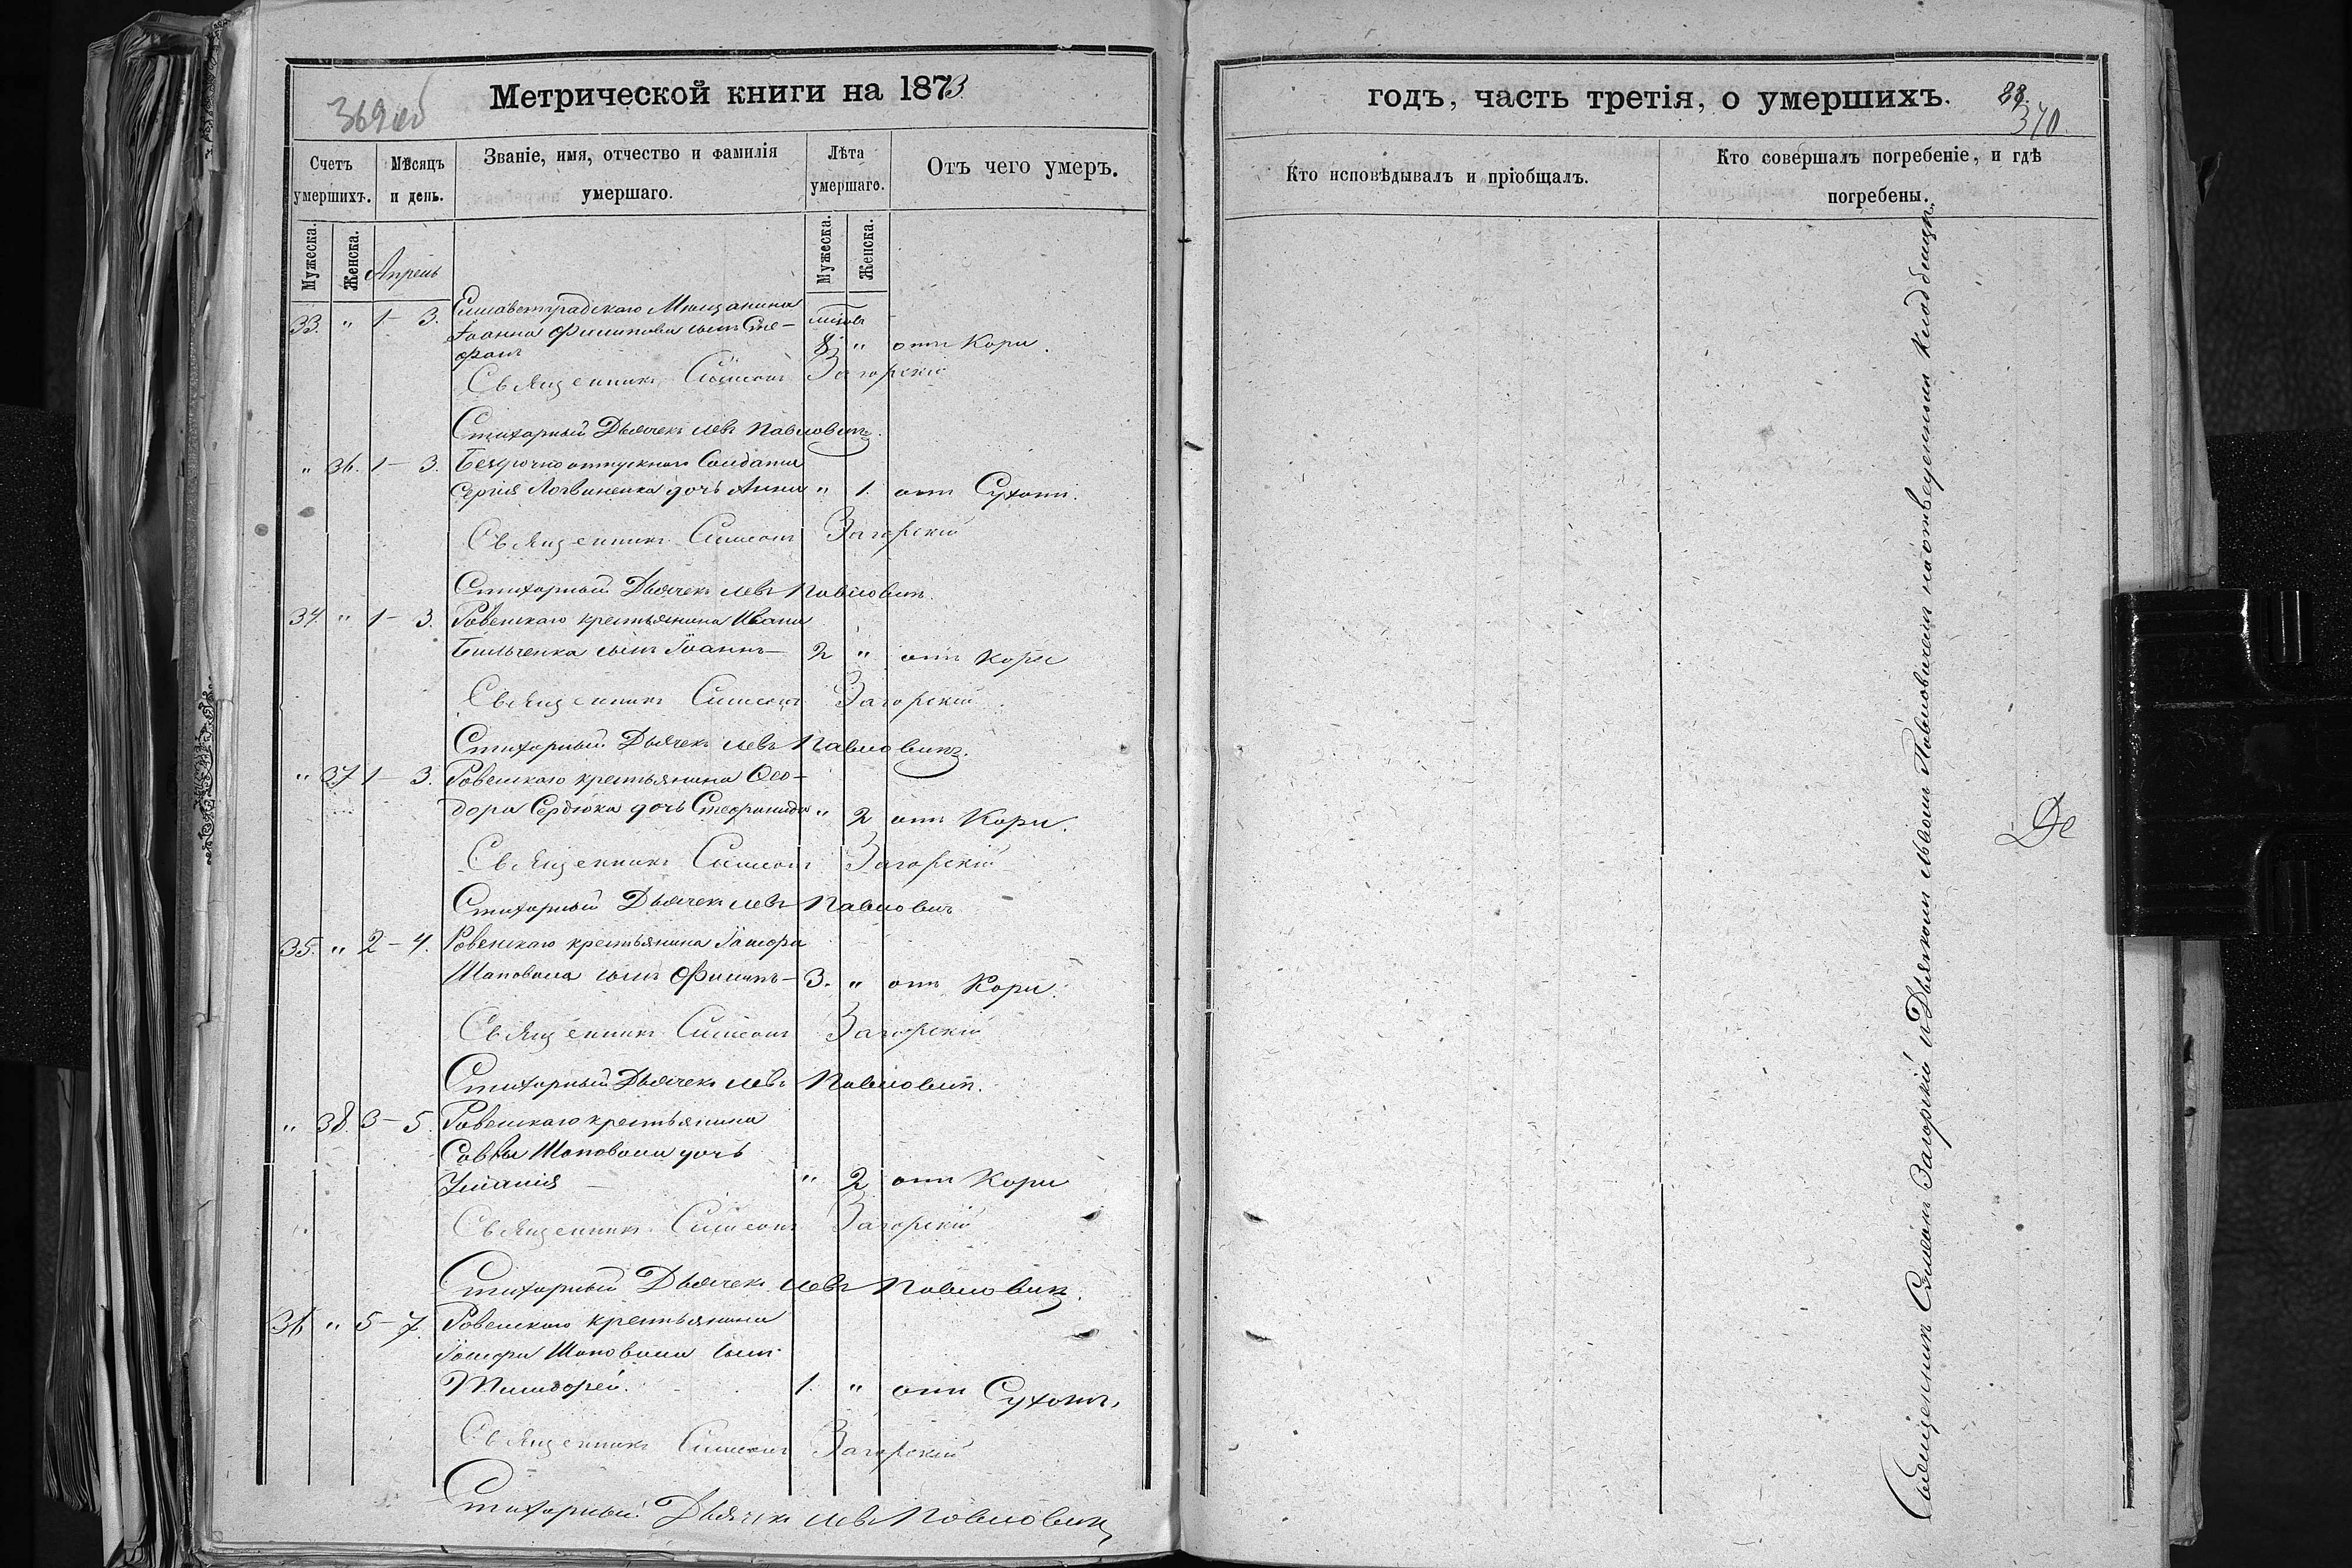 369 об
Метрической книги на 1873
Счетъ умершихъ.
Мѣсяцъ и день.
Званіе, имя, отчество и фамилія умершаго.
Лѣта умершаго.
Отъ чего умеръ.
Мужеска.
Женска.
Апрель
Мужеска.
Женска.
Елисаветградскаго Мещанина
33. " 1 – 3. Іоанна Филипова сынъ Сте-
фанъ 8 " отъ Кори.
Священникъ Симеонъ Загорскій
Стихарный Дьячекъ Левъ Павловичъ.
" 36. 1 – 3. Безсрочно отпускнаго Солдата
Сергія Логвиненка дочь Анна " 1. отъ Сухот.
Священникъ Симеонъ Загорскій
Стихарный Дьячекъ Левъ Павловичъ.
34. " 1 – 3. Ровенскаго крестьянина Ивана
Бильченка сынъ Іоаннъ – 2 " отъ Кори
Священникъ Симеонъ Загорскій
Стихарный Дьячекъ Левъ Павловичъ.
" 37 1 – 3. Ровенскаго крестьянина Ѳео-
дора Сердюка дочь Стефанида " 2 отъ Кори.
Священникъ Симеонъ Загорскій
Стихарный Дьячекъ Левъ Павловичъ
35. " 2 – 4. Ровенскаго крестьянина
Шаповала сынъ Филипъ – 3. " отъ Кори.
Священникъ Симеонъ Загорскій
Стихарный Дьячекъ Левъ Павловичъ.
" 38. 3 – 5. Ровенскаго крестьянина
Саввы Шаповала дочь
Уліанія – " 2 отъ Кори
Священникъ Симеонъ Загорскій
Стихарный Дьячекъ Левъ Павловичъ.
36 " 5 – 7. Ровенскаго крестьянина
Шаповала сынъ
Тимофей. 1. " отъ Сухотъ.
Священникъ Симеонъ Загорскій
Стихарный Дьячекъ Левъ Павловичъ
годъ, часть третія, о умершихъ.
88.
370.
Кто исповѣдывалъ и пріобщалъ.
Кто совершалъ погребеніе, и гдѣ погребены.
Священникъ Симеонъ Загорскій и Дьякомъ Львомъ Павловичемъ на отведенномъ кладбищѣ.
Де